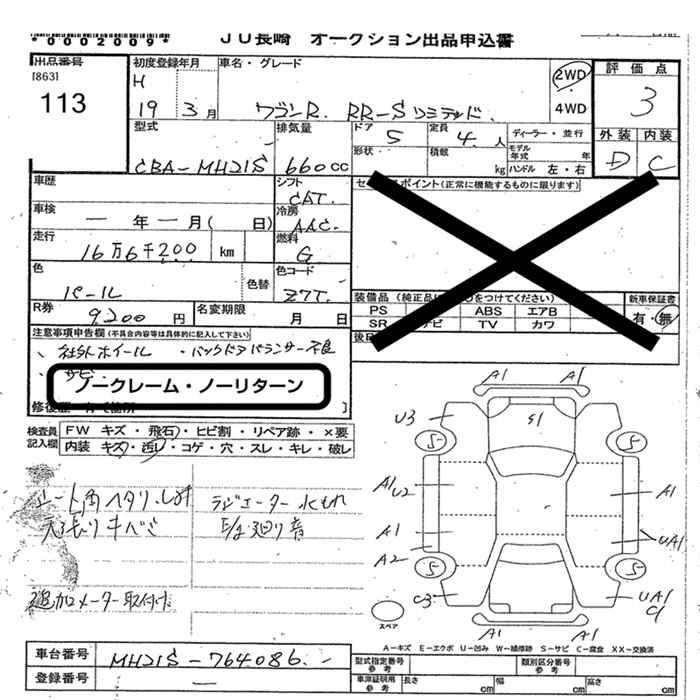 *0002009*
JU長崎 オークション出品申込書
出品番号
[863]
113
初度登録年月
H
19 3月
車名・グレード
ワゴンR RR-Sリミテッド
2WD
4WD
評価点
3
外装 内装
D C
型式
CBA-MH21S
排気量
660cc
ドア
5
定員
4人
ディーラー・並行
形状
積載
kg
モデル年式 年
ハンドル 左・右
車歴
シフト
CAT.
セ ポイント(正常に機能するものに限ります)
車検
ー年ー月( 日)
冷房
AAC.
走行
16万6千200 km
燃料
G
色
パール
色替
色コード
Z7T.
装備品(純正品に をつけてください)
PS ABS エアB
SR ナビ TV カワ
新車保証書
有・無
R券
9200円
名変期限
月 日
後日
注意事項申告欄(不具合内容等は具体的に記入して下さい)
、社外ホイール ・バックドアバランサー不良
、サビ
ノークレーム・ノーリターン
修復歴 有
検査員記入欄
FW キズ・飛石・ヒビ割・リペア跡・×要
内装 キズ・汚レ・コゲ・穴・スレ・キレ・破レ
ラジエーター水もれ
追加メーター取付け
A1 A1
U3 S1
S S
A1 U2 A1
A1 UA1
A2
S S
C3 UA1
A1 A1
スペア
A−キズ E−エクボ U−凹み W−補修跡 S−サビ C−腐食 XX−交換済
車台番号
MH21S-764086
登録番号
ー
型式指定番号 参考
類別区分番号 参考
車庫証明用 参考
長さ cm 幅 cm 高さ cm